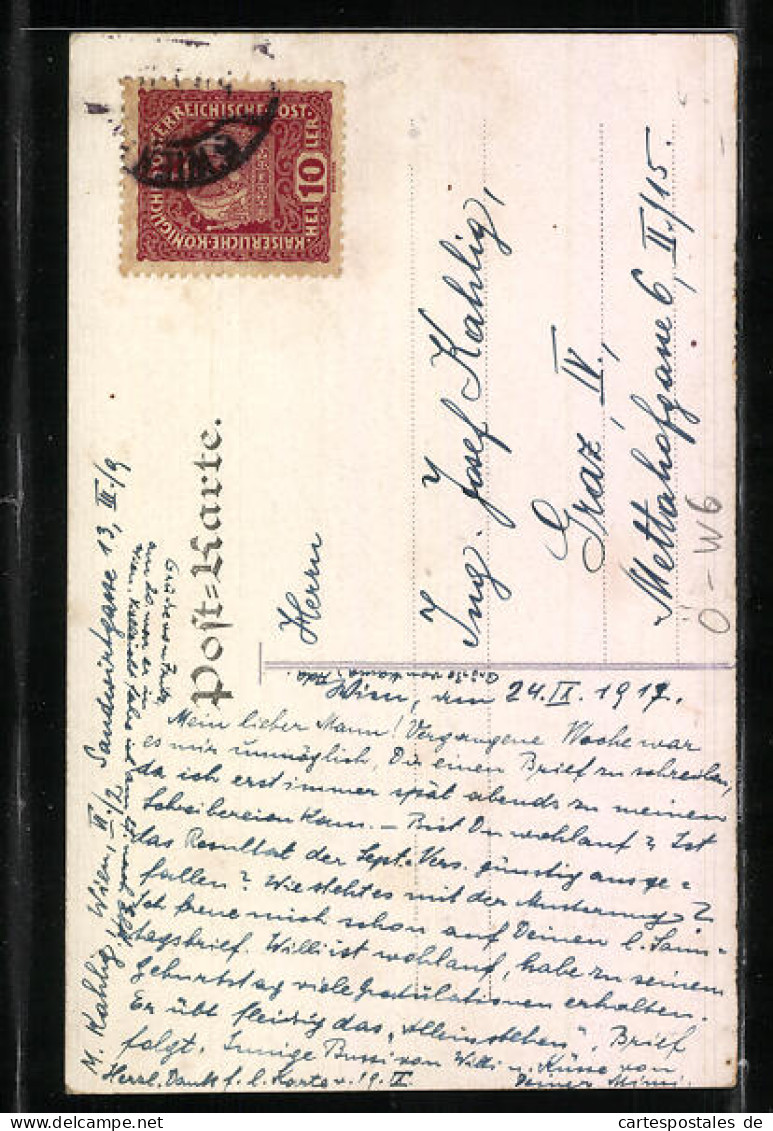 KAISERLICHE KÖNIGLICHE ÖSTERREICHISCHE POST
10 HELLER
Post=Karte.
Herrn
Ing. Josef Kahlig,
Graz IV.,
Mettahofgasse 6, II./15.
Ö-W6
M. Kahlig, Wien, II/2 Sandwirtgasse 13, III./9
Wien, am 24. IX. 1917.
Mein lieber Mann! Vergangene Woche war
es mir unmöglich, Dir einen Brief zu schreiben,
da ich erst immer spät abends zu meinen
Schreibereien kam. – Bist Du wohlauf? Ist
das Resultat der Sept.-Vers. günstig ausge=
fallen? Wie steht es mit der Musterung?
Ich freue mich schon auf Deinen l. Sonn-
tagsbrief. Willi ist wohlauf, habe zu seinem
Geburtstag viele Gratulationen erhalten.
Er übt fleißig das „Alleinstehen". Brief
folgt. Innige Bussi von Willi u. Küsse von
Deiner Mimi.
Herzl. Dank f. l. Karte v. 19. IX.
cartespostales de